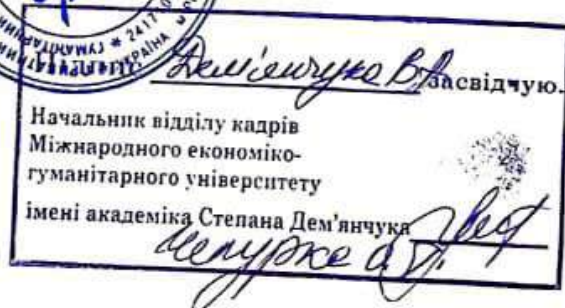 ГУМАНІТАРНИЙ * 2417
УКРАЇНА
Підпис Дем'янчука В.А. засвідчую.
Начальник відділу кадрів
Міжнародного економіко-
гуманітарного університету
імені академіка Степана Дем'янчука